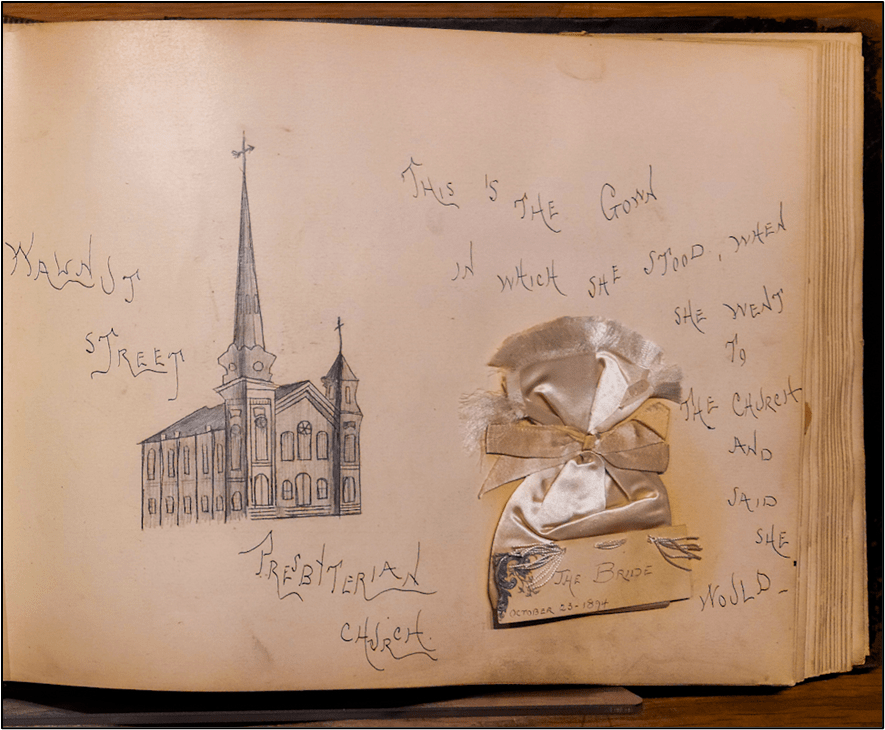 WALNUT
STREET
PRESBYTERIAN
CHURCH.
THIS IS THE GOWN
IN WHICH SHE STOOD, WHEN
SHE WENT
TO
THE CHURCH
AND
SAID
SHE
WOULD -
THE BRIDE
OCTOBER 23 - 1894